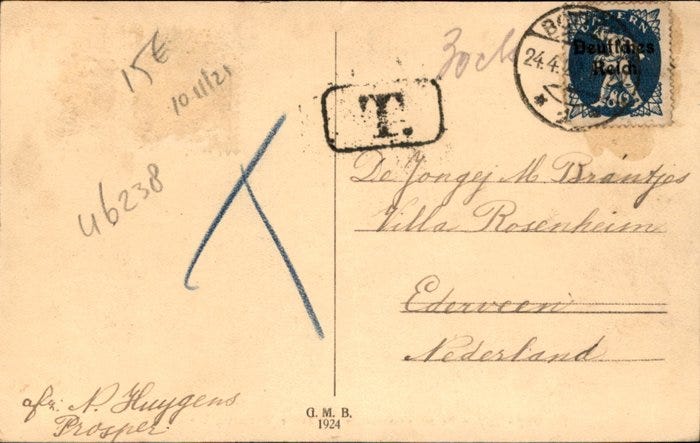 15€
10 11/21
46238
30 ch
T.
24.4.
BAYERN
Deutsches
Reich
De Jongej M Brantjes
Villa Rosenheim
Ederveen
Nederland
afz: N. Huygens
Prosper.
G. M. B.
1924